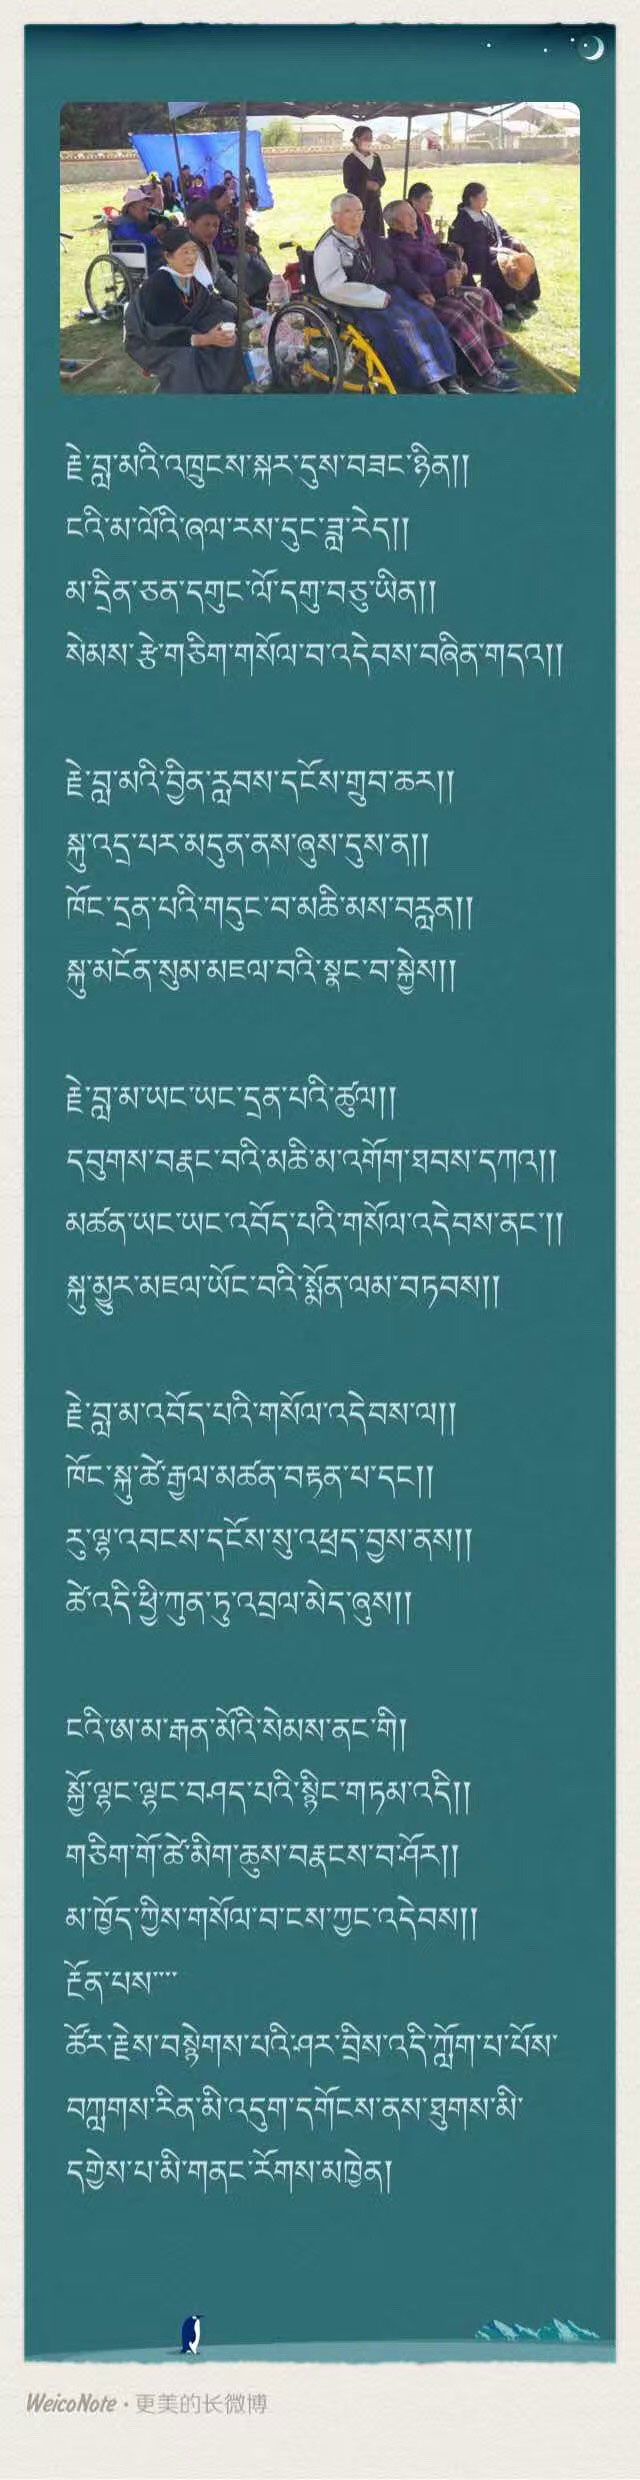 རྗེ་བླ་མའི་འཁྲུངས་སྐར་དུས་བཟང་ཉིན།།
ངའི་མ་ལོའི་ཞལ་རས་དུང་ཟླ་རེད།།
མ་དྲིན་ཅན་དགུང་ལོ་དགུ་བཅུ་ཡིན།།
སེམས་རྩེ་གཅིག་གསོལ་བ་འདེབས་བཞིན་གདའ།།
རྗེ་བླ་མའི་བྱིན་རླབས་དངོས་གྲུབ་ཆར།།
སྐུ་འདྲ་པར་མདུན་ནས་ཞུས་དུས་ན།།
ཁོང་དྲན་པའི་གདུང་བ་མཆི་མས་བརླན།།
སྐུ་མངོན་སུམ་མཇལ་བའི་སྣང་བ་སྐྱེས།།
རྗེ་བླ་མ་ཡང་ཡང་དྲན་པའི་ཚུལ།།
དབུགས་བརྣང་བའི་མཆི་མ་འགོག་ཐབས་དཀའ།།
མཚན་ཡང་ཡང་འབོད་པའི་གསོལ་འདེབས་ནང་།།
སྐུ་མྱུར་མཇལ་ཡོང་བའི་སྨོན་ལམ་བཏབས།།
རྗེ་བླ་མ་འབོད་པའི་གསོལ་འདེབས་ལ།།
ཁོང་སྐུ་ཚེ་རྒྱལ་མཚན་བརྟན་པ་དང་།།
རུ་ལྷ་འབངས་དངོས་སུ་འཕྲད་བྱས་ནས།།
ཚེ་འདི་ཕྱི་ཀུན་ཏུ་འབྲལ་མེད་ཞུས།།
ངའི་ཨ་མ་རྒན་མོའི་སེམས་ནང་གི།
སྐྱོ་ལྷང་ལྷང་བཤད་པའི་སྙིང་གཏམ་འདི།།
གཅིག་གོ་ཚེ་མིག་ཆུས་བརྣངས་བ་ཤོར།།
མ་ཁྱོད་ཀྱིས་གསོལ་བ་ངས་ཀྱང་འདེབས།།
རྔོན་པས་་་་
ཚོར་རྗེས་བསྙེགས་པའི་ཤར་བྲིས་འདི་ཀློག་པ་པོས་
བཀླགས་རིན་མི་འདུག་དགོངས་ནས་ཐུགས་མི་
དགྱེས་པ་མི་གནང་རོགས་མཁྱེན།
WeicoNote · 更美的长微博